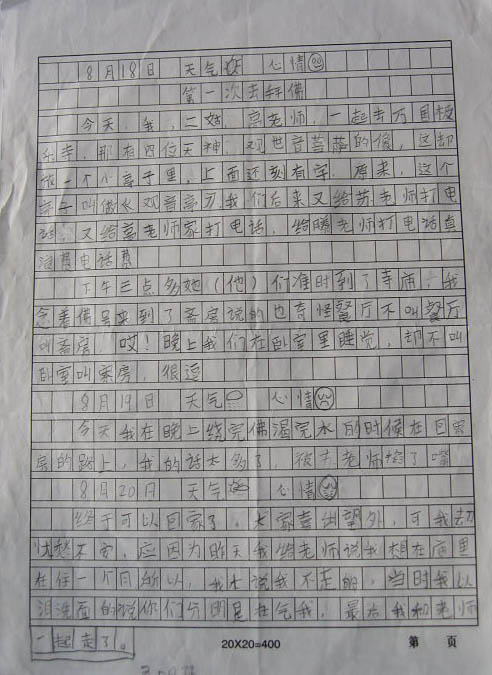 8月18日 天气 心情
第一次去拜佛
今天,我,二姑,高老师,一起去万国极
乐寺,那有四位天神,观世音菩萨的像,这却
放一个小亭子里,上面还刻有字,原来,这个
亭子叫做《观音亭》我们后来又给苏老师打电
话,又给高老师家打电话,给腾老师打电话真
浪费电话费
下午三点多她(他)们准时到了寺庙,我
念着佛号来到了斋房说的也奇怪餐厅不叫餐厅
叫斋房,哎!晚上我们在卧室里睡觉,却不叫
卧室叫寮房,很逗
8月19日 天气 心情
今天我在晚上绕完佛渴完水的时候在回寮
房的路上,我的话太多了,被 老师 了嘴
8月20日 天气 心情
终于可以回家了,大家喜出望外,可我却
不 ,应因为昨天我给老师说我想在庙里
在住一个月所以,我 说我不走的,当时我以
泪洗面的说你们分明是在气我,最后我和老师
一起走了。
20X20=400 第 页